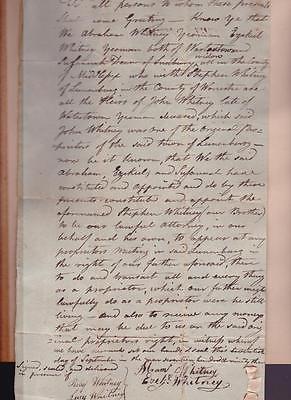 To all persons to whom these presents
shall come Greeting — Know Ye that
We Abraham Whitney Yeoman Ezekiel
Whitney Yeoman both of Watertown &
Susannah widow of in the County
of Middx who with Stephen Whitney
of Lunenburg in the County of Worcester are
all the Heirs of John Whitney late of
Watertown Yeoman deceased, which said
John Whitney was one of the Original Pro-
prietors of the said town of Lunenburg —
now be it known, that We the said
Abraham, Ezekiel, and Susannah have
constituted and appointed and do by these
presents constitute and appoint the
aforenamed Stephen Whitney our Brother
to be our lawful Attorney, in our
behalf and his own, to appear at any
proprietors meeting in said Lunenburg in
the right of our father aforesaid, then
to do and transact all and every thing
as a proprietor, which our father might
lawfully do as a proprietor were he still
living — And also to receive any money
that may be due to us on the said
proprietors right, in witness where
we have our hands &
day of
Signed, sealed and delivered
in presence of
Abram Whitney
Whitney
Whitney
Whitney